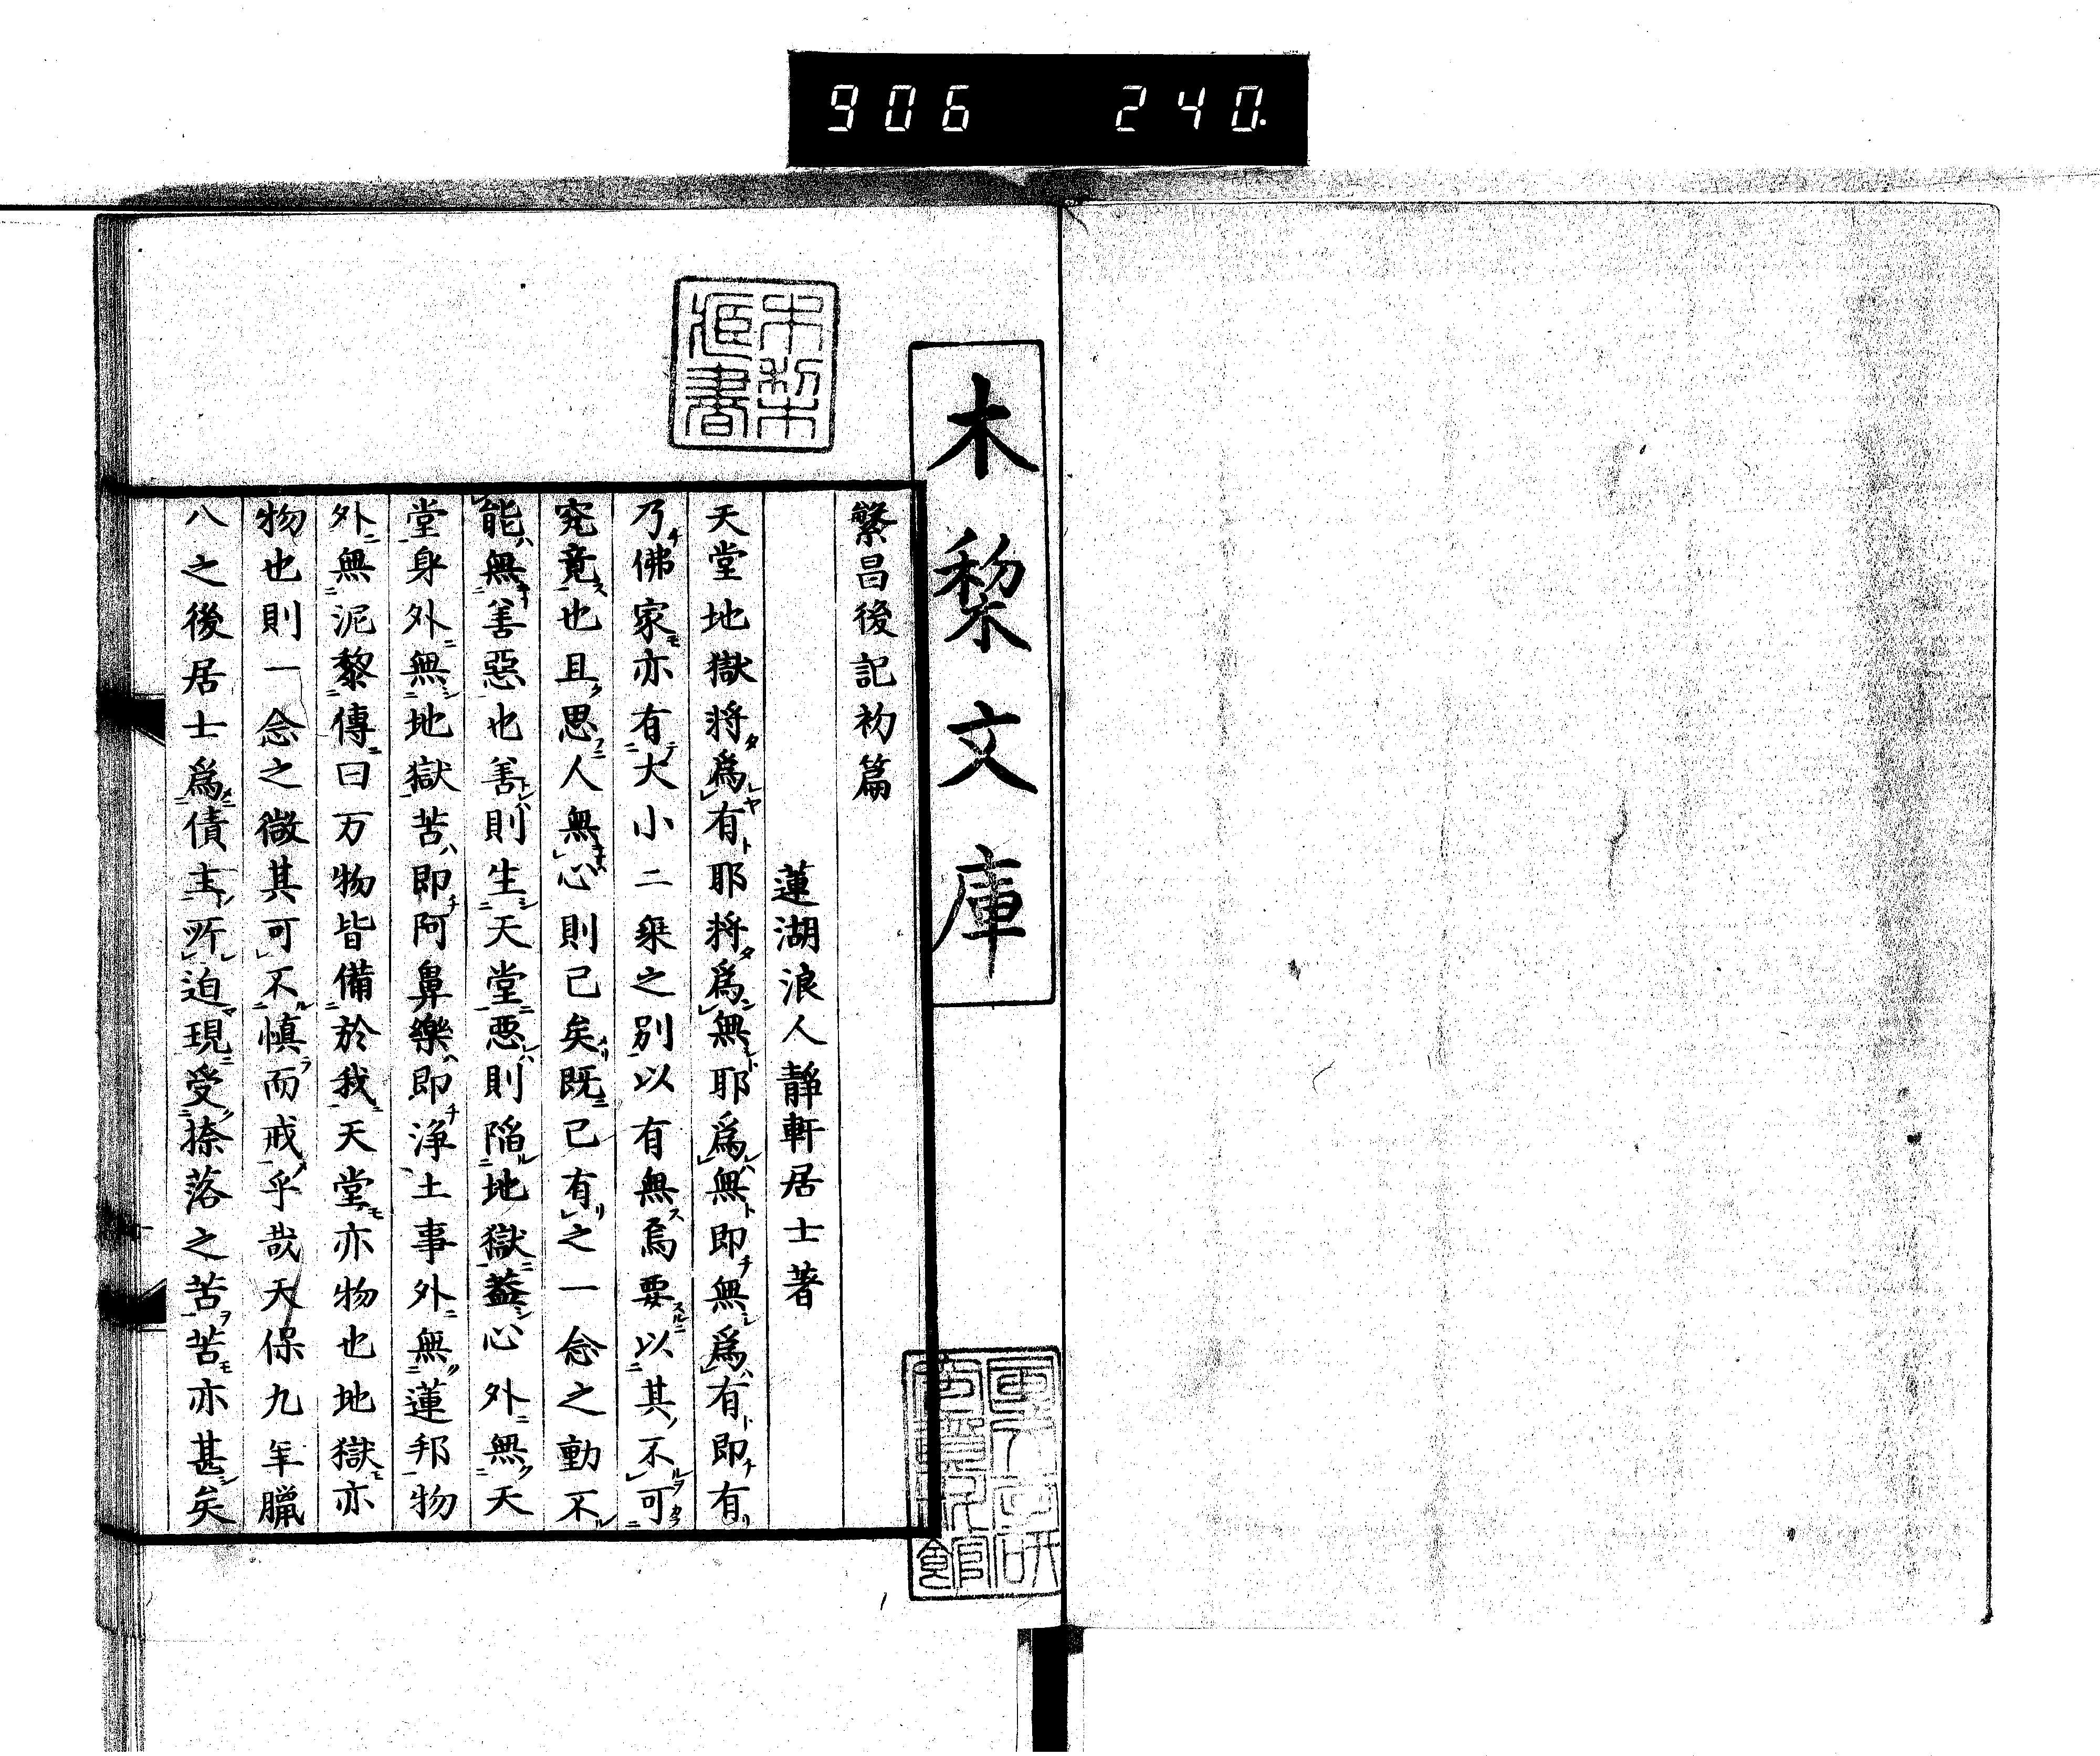 906 240.
木棃文庫
繁昌後記初篇
蓮湖浪人靜軒居士著
天堂地獄將爲有耶將爲無耶爲無即無爲有即有
乃佛家亦有大小二乗之別以有無爲要以其不可
究竟也且思人無心則已矣既已有之一念之動不
能無善惡也善則生天堂惡則陷地獄葢心外無天
堂身外無地獄苦即阿鼻樂即淨土事外無蓮邦物
外無泥黎傳曰万物皆備於我天堂亦物也地獄亦
物也則一念之微其可不愼而戒乎哉天保九年臘
八之後居士爲債主所迫現受捺落之苦苦亦甚矣